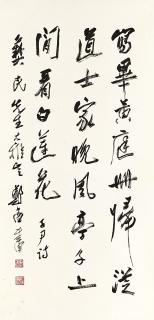 寫畢黃庭冊歸從
道士家晚風亭子上
閒看白蓮花 季尹詩
彝民先生大雅之